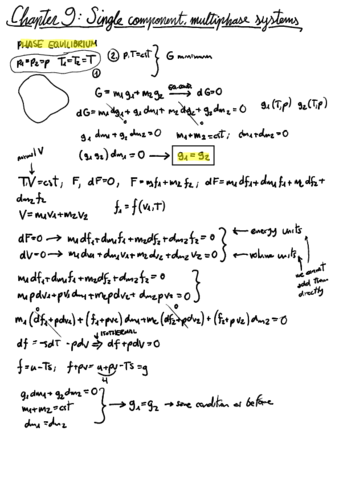 Chapter 9: Single component, multiphase systems
PHASE EQUILIBRIUM
p1=p2=p T1=T2=T
① ② p,T=cst } G minimum
G = m1g1 + m2g2 → dG=0
dG = m1dg1 + g1dm1 + m2dg2 + g2dm2 = 0 g1(T,p) g2(T,p)
g1dm1 + g2dm2 = 0 m1+m2=cst; dm1+dm2=0
(g1-g2)dm1=0 → g1=g2
T,V=cst, F, dF=0, F=m1f1+m2f2; dF=m1df1+dm1f1+m2df2+
dm2f2
V=m1v1+m2v2 f1=f(v1,T)
dF=0 → m1df1+dm1f1+m2df2+dm2f2=0 ← energy units
dV=0 → m1dv1+dm1v1+m2dv2+dm2v2=0 ← volume units
we cannot
add them
directly
m1df1+dm1f1+m2df2+dm2f2=0
m1pdv1+pv1dm1+m2pdv2+dm2pv2=0
m1(df1+pdv1)+(f1+pv1)dm1+m2(df2+pdv2)+(f2+pv2)dm2=0
ISOTHERMAL
df=-sdT-pdv ⇒ df+pdv=0
f=u-Ts; f+pv=u+pv-Ts=g
h
g1dm1+g2dm2=0
m1+m2=cst → g1=g2 → same condition as before
dm1=dm2